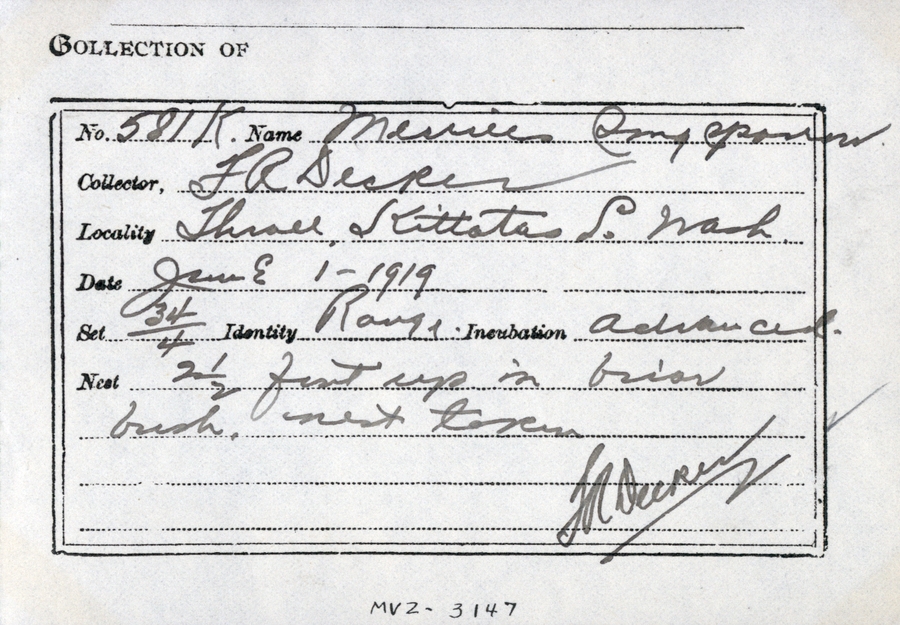 COLLECTION OF
No. 581 K. Name Merrills Song sparrow
Collector, F R Decker
Locality Thrall, Kittatas P. Wash.
Date June 1-1919
Set 34/4 Identity Range Incubation advanced.
Nest 2 1/2 feet up in briar
bush. nest taken
F R Decker
MVZ- 3147